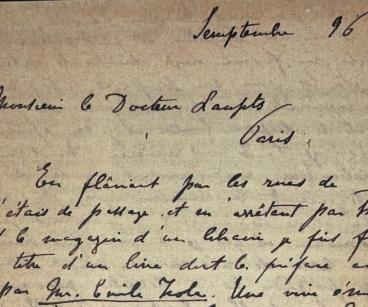 Semptembre 96
Monsieur le Docteur Laupts
Paris
En flânant par les rues de
j'étais de passage et en m'arrêtant par
le magazin d'un libraire je fis
titre d'un livre dont la préface
par Mr. Emile Zola. Une vive